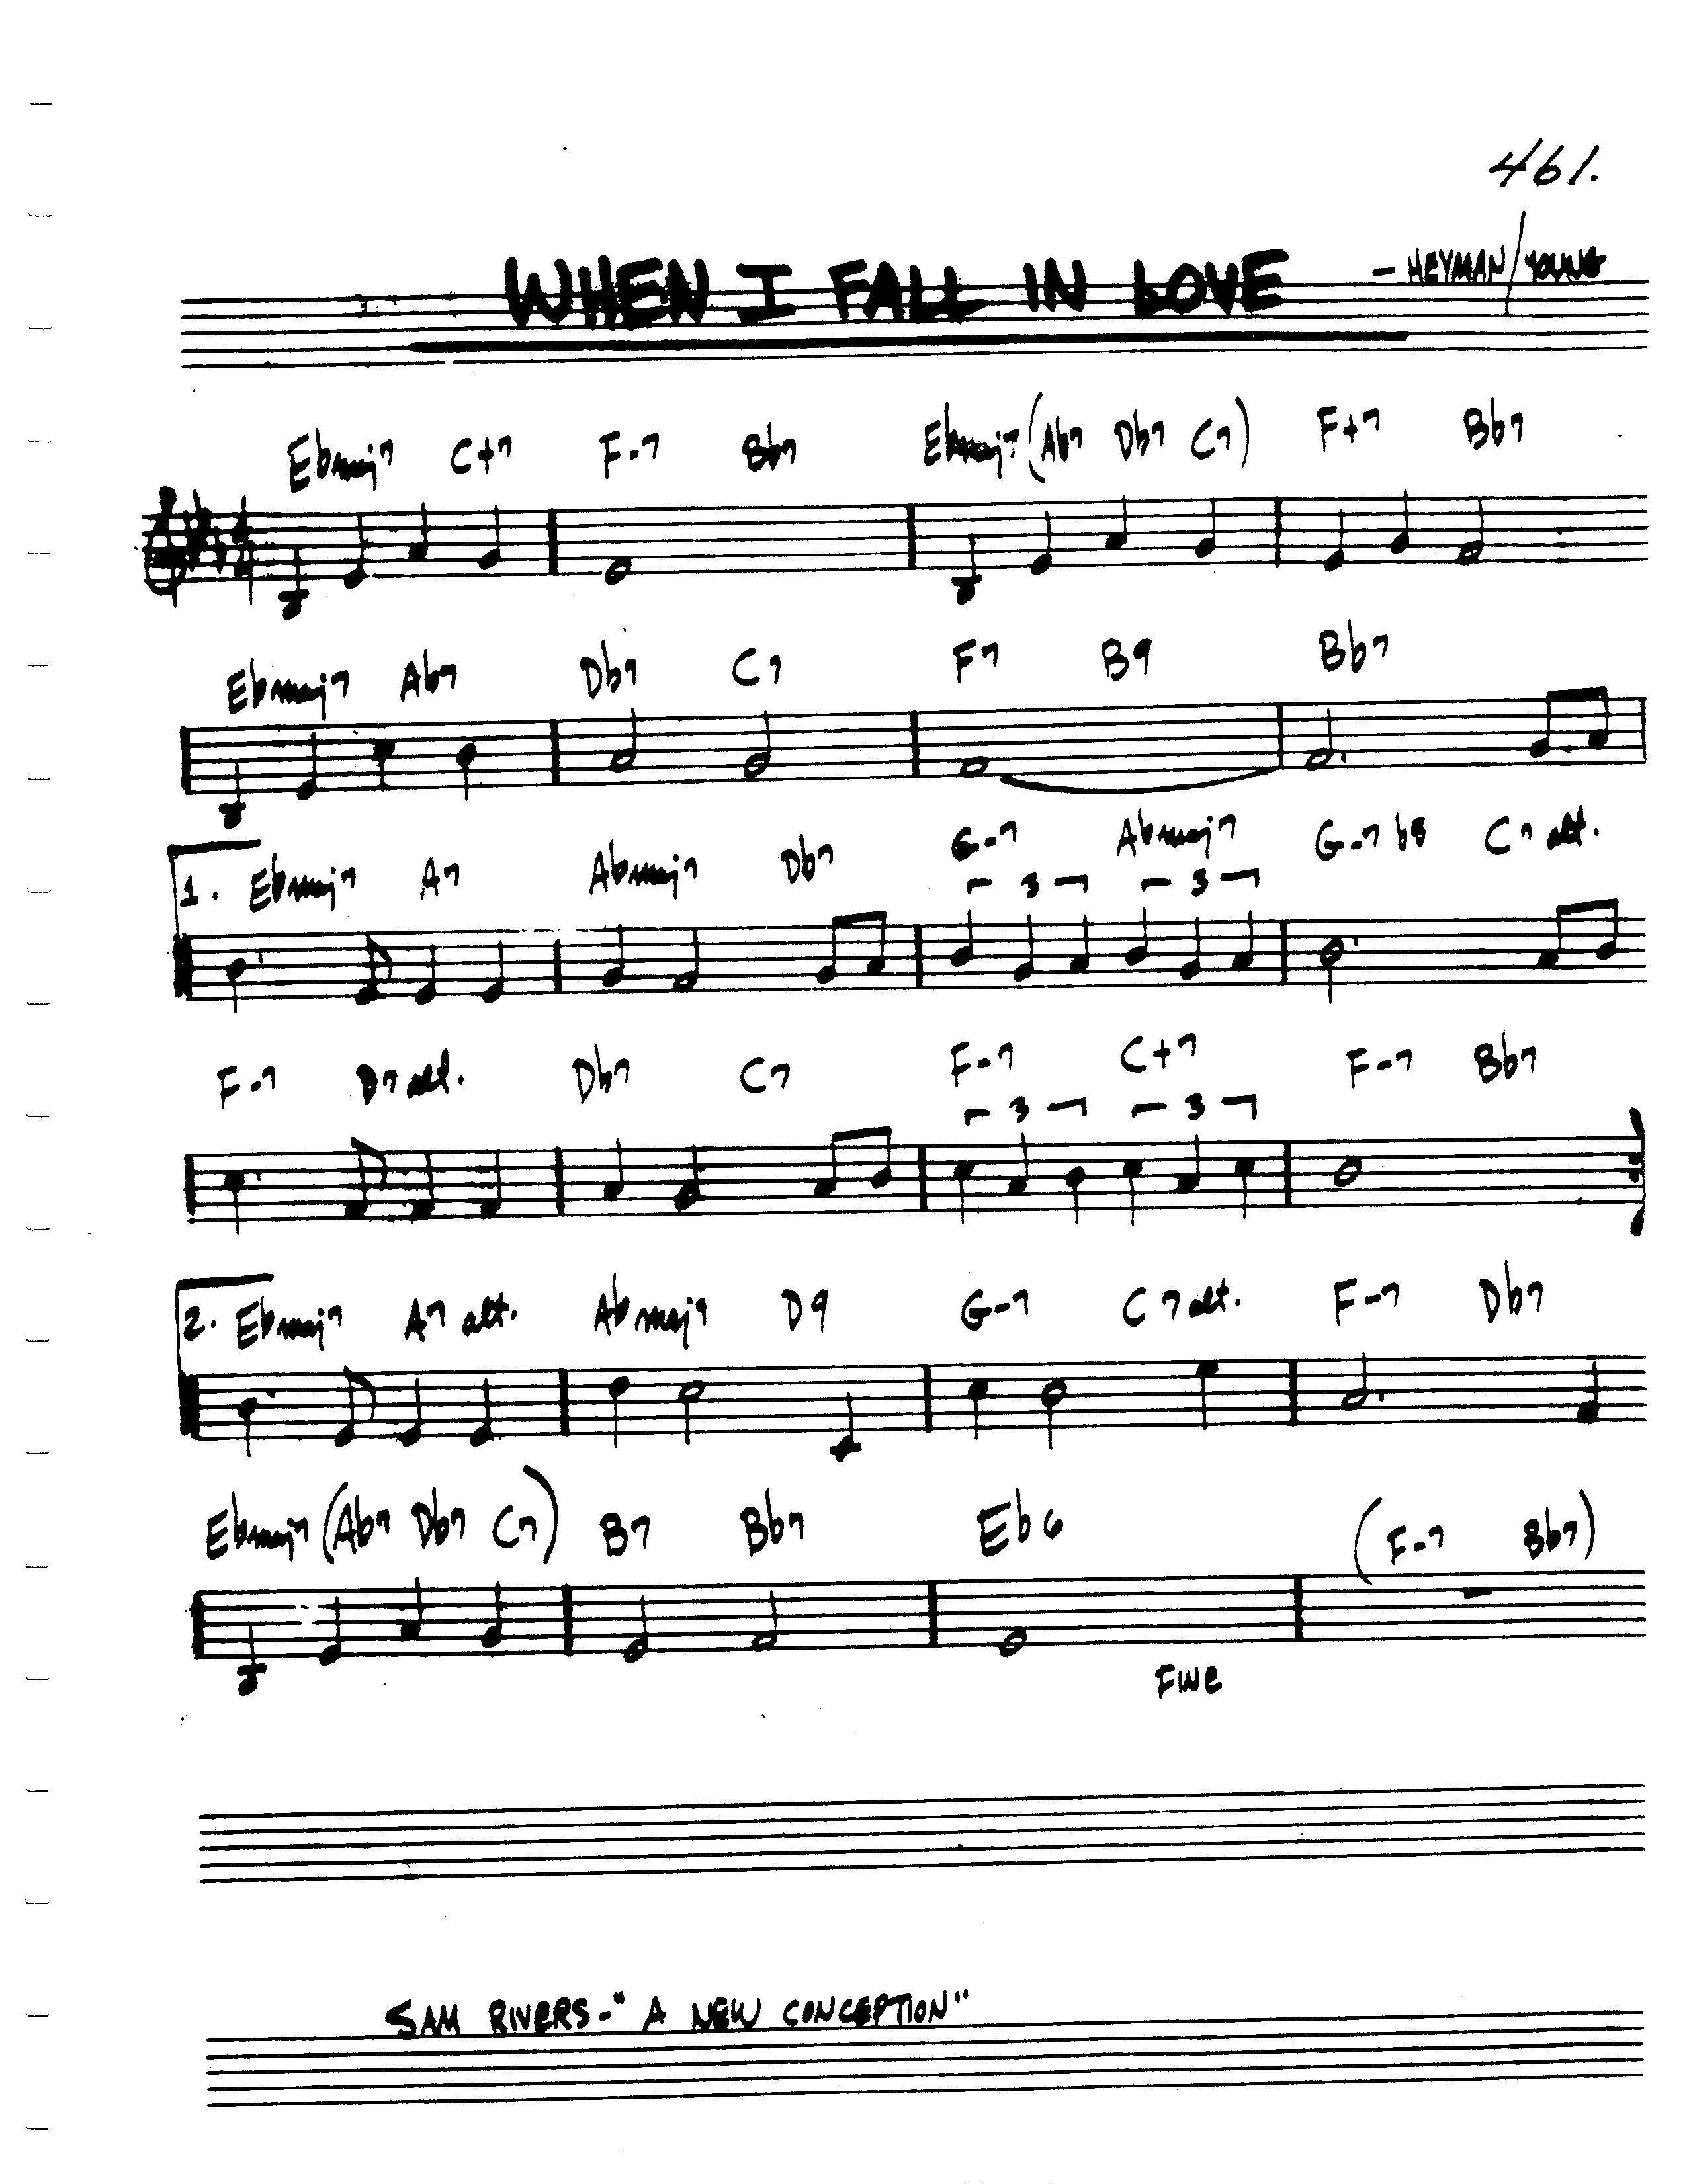 461.
WHEN I FALL IN LOVE - HEYMAN/YOUNG
Ebmaj7 C+7 F-7 Bb7 Ebmaj7 (Ab7 Db7 C7) F+7 Bb7
Ebmaj7 Ab7 Db7 C7 F7 B9 Bb7
1. Ebmaj7 A7 Abmaj7 Db7 G-7 Abmaj7 G-7 b5 C7 alt.
3 3
F-7 D7 alt. Db7 C7 F-7 C+7 F-7 Bb7
3 3
2. Ebmaj7 A7 alt. Abmaj9 D9 G-7 C7 alt. F-7 Db7
Ebmaj7 (Ab7 Db7 C7) B7 Bb7 Eb6 (F-7 Bb7)
FINE
SAM RIVERS - "A NEW CONCEPTION"